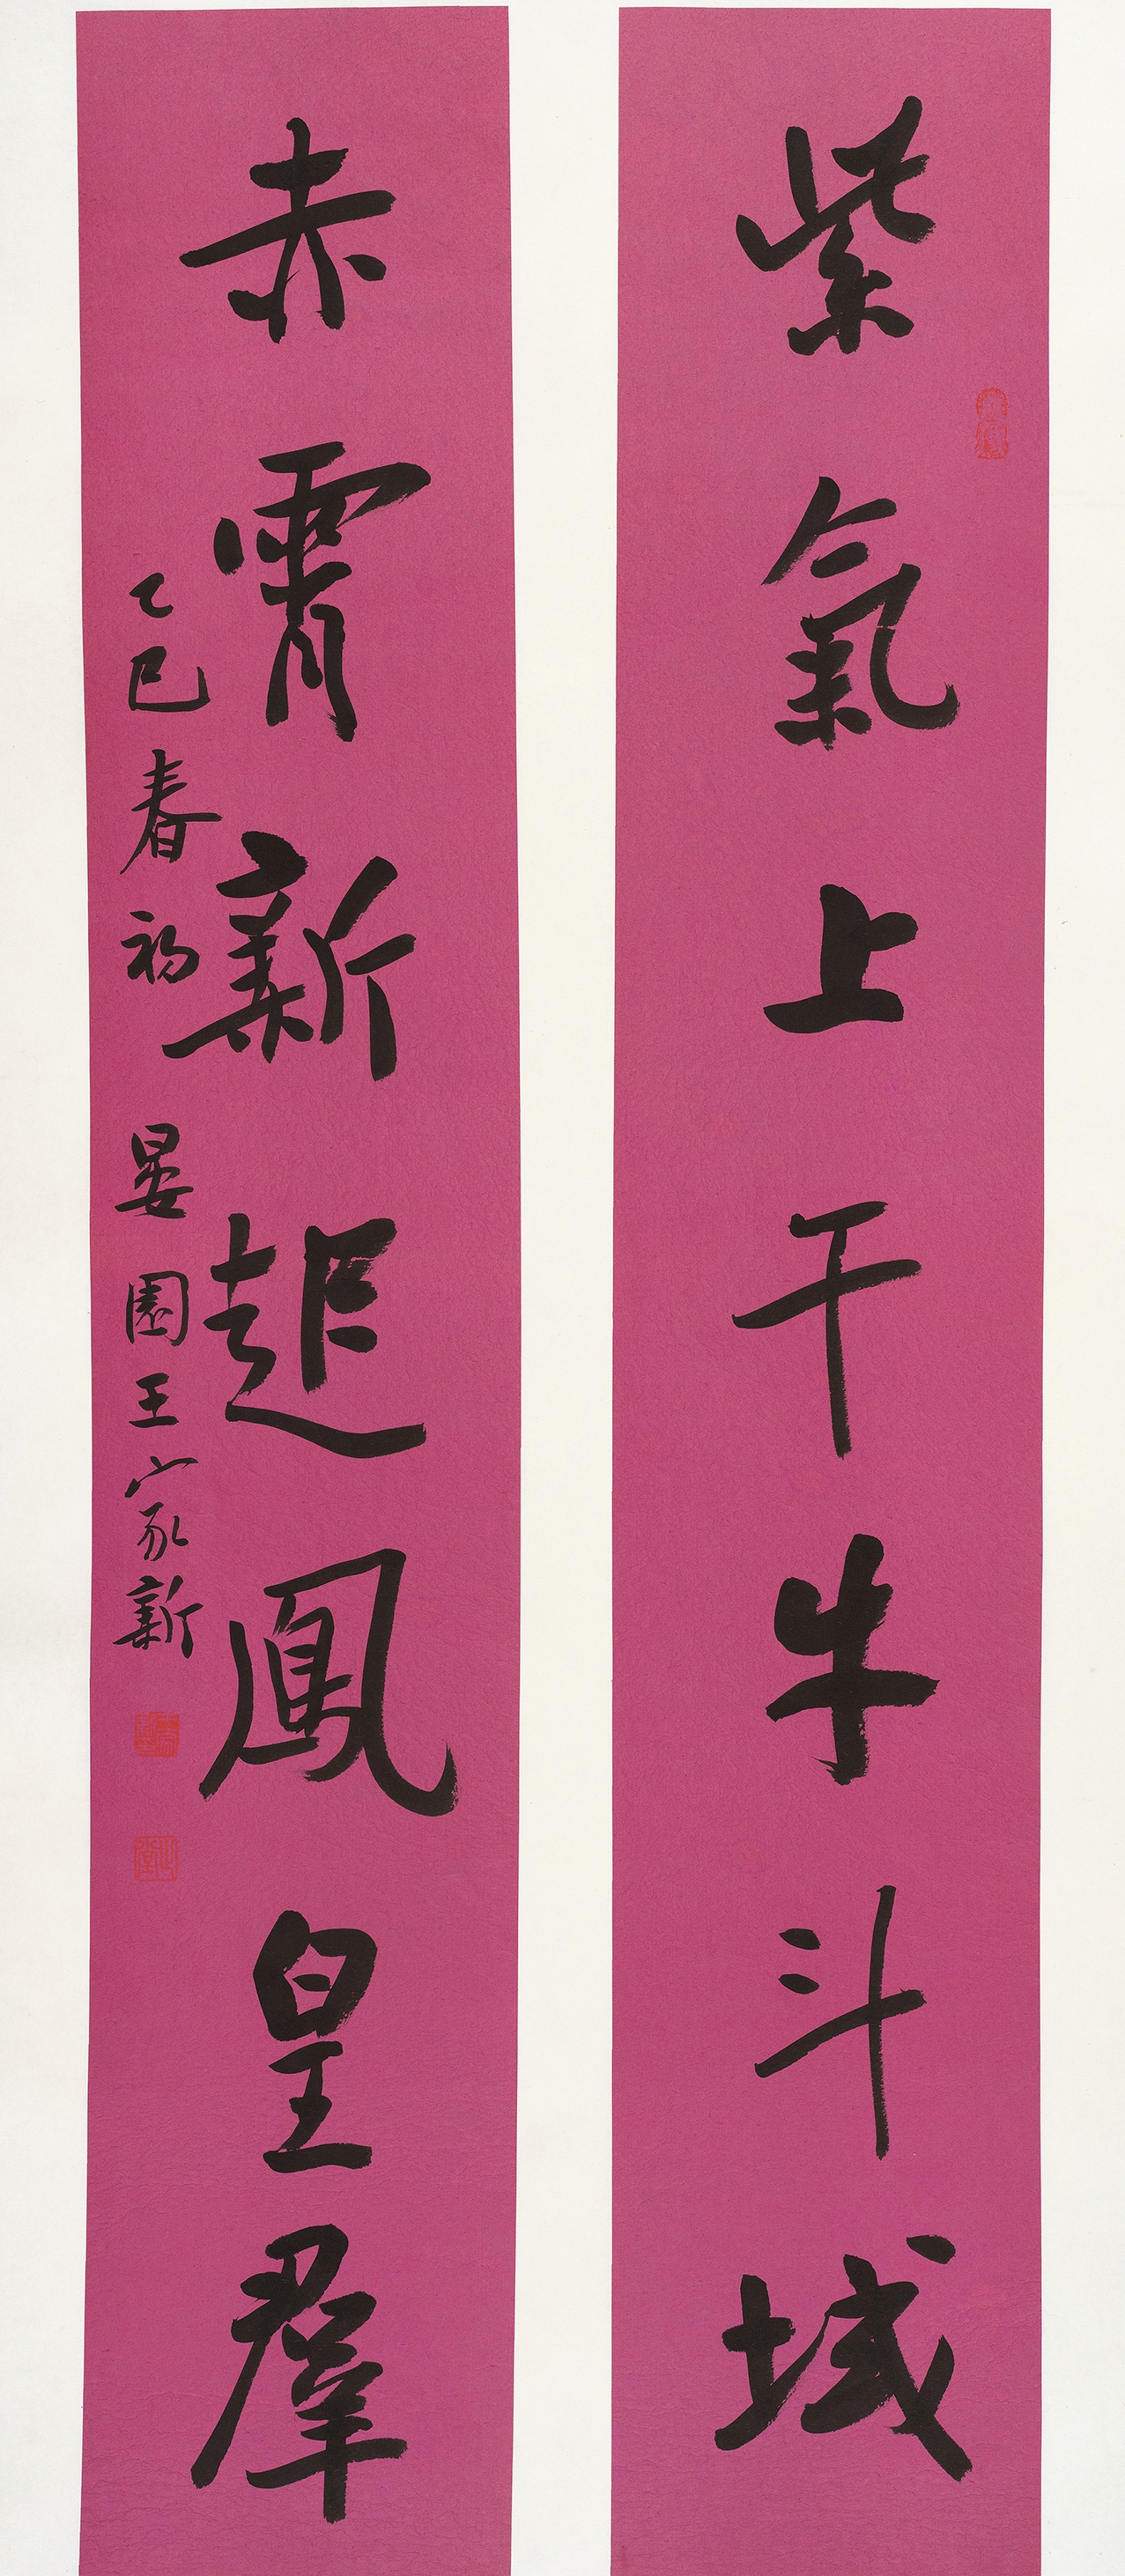 紫氣上干牛斗域
赤霄新起鳳皇羣
乙巳春初 晏園王家新